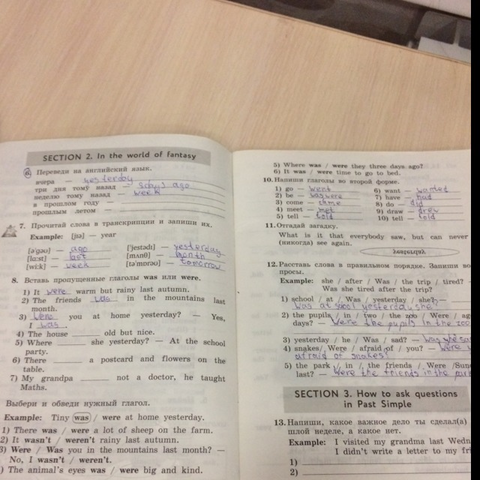 SECTION 2. In the world of fantasy
6. Переведи на английский язык.
вчера — yesterday
три дня тому назад — 3 days ago
неделю тому назад — week
в прошлом году —
прошлым летом —
7. Прочитай слова в транскрипции и запиши их.
Example: [jɪə] — year
[ə'gəʊ] — ago ['jestədɪ] — yesterday
[lɑ:st] — last [mʌnθ] — month
[wi:k] — week [tə'mɒrəʊ] — tomorrow
8. Вставь пропущенные глаголы was или were.
1) It were warm but rainy last autumn.
2) The friends was in the mountains last
month.
3) were you at home yesterday? — Yes,
I was.
4) The house ______ old but nice.
5) Where ______ she yesterday? — At the school
party.
6) There ______ a postcard and flowers on the
table.
7) My grandpa ______ not a doctor, he taught
Maths.
Выбери и обведи нужный глагол.
Example: Tiny was / were at home yesterday.
1) There was / were a lot of sheep on the farm.
2) It wasn't / weren't rainy last autumn.
3) Were / Was you in the mountains last month? —
No, I wasn't / weren't.
) The animal's eyes was / were big and kind.
5) Where was / were they three days ago?
6) It was / were time to go to bed.
10. Напиши глаголы во второй форме.
1) go — went 6) want — wanted
2) be — was were 7) have — had
3) come — came 8) do — did
4) meet — met 9) draw — drew
5) tell — told 10) tell — told
11. Отгадай загадку.
What is it that everybody saw, but can never
(никогда) see again.
12. Расставь слова в правильном порядке. Запиши во
просы.
Example: she / after / Was / the trip / tired?
Was she tired after the trip?
1) school / at / Was / yesterday / she? —
was at school yesterday she
2) the pupils / in / two / the zoo / Were / ag
days? — were the pupils in the zoo
3) yesterday / he / Was / sad? —
4) snakes / Were / afraid of / you? — were
afraid of snakes?
5) the park / in / the friends / Were / Sun
last? — Were the friends in the park
SECTION 3. How to ask questions
in Past Simple
13. Напиши, какое важное дело ты сделал(а)
шлой неделе, а какое нет.
Example: I visited my grandma last Wedn
I didn't write a letter to my fri
1)
2)